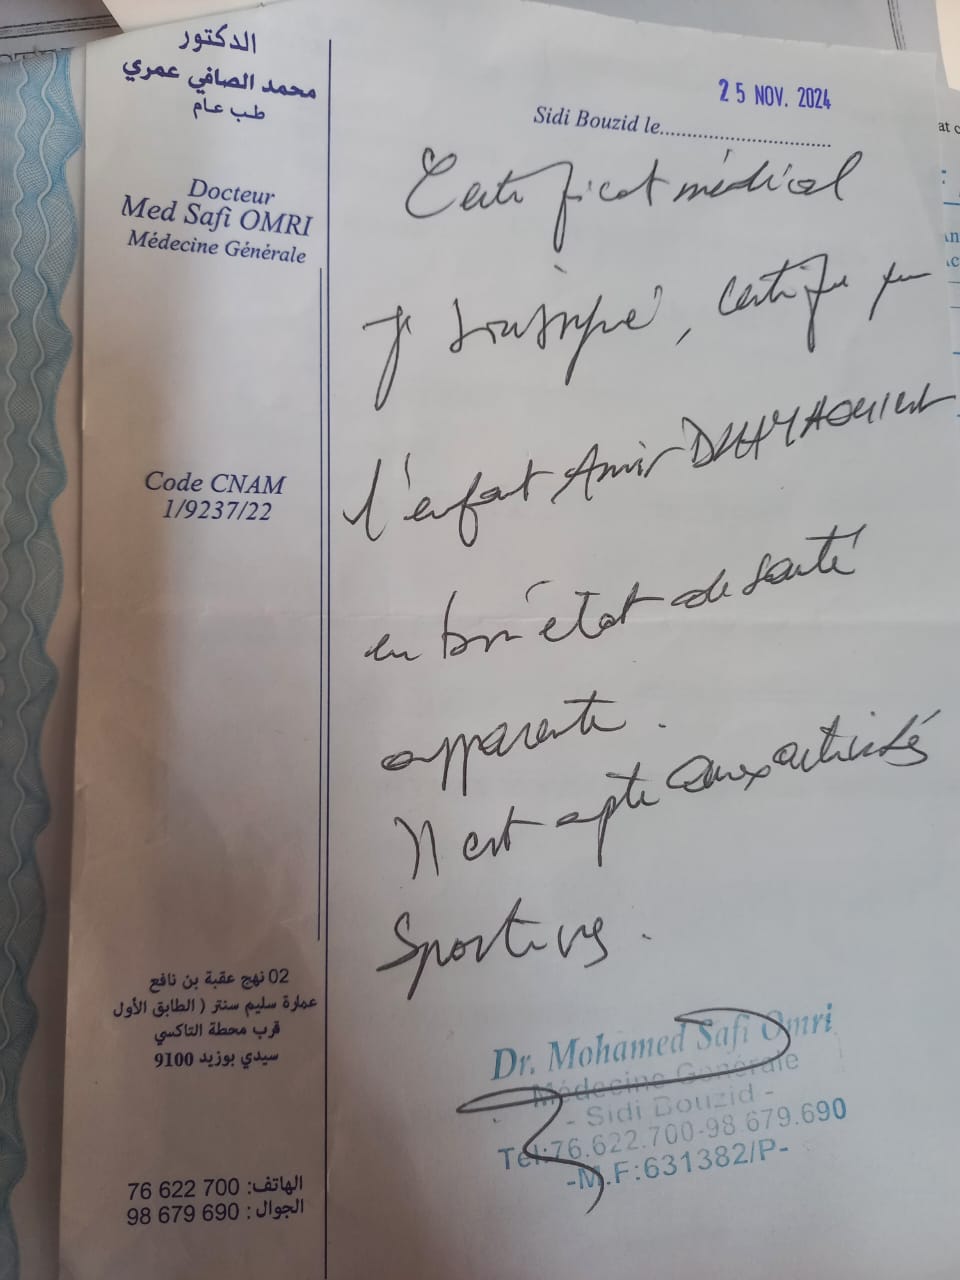 الدكتور
محمد الصافي عمري
طب عام
Docteur
Med Safi OMRI
Médecine Générale
Code CNAM
1/9237/22
02 نهج عقبة بن نافع
عمارة سليم سنتر ( الطابق الأول
قرب محطة التاكسي
سيدي بوزيد 9100
الهاتف: 700 622 76
الجوال : 690 679 98
25 NOV. 2024
Sidi Bouzid le
Certificat médical
Je soussigné, certifie que
l'enfant Amir
en bon état de santé
apparente.
Il est apte aux activités
Sportives.
Dr. Mohamed Safi Omri
Médecine Générale
- Sidi Bouzid -
Tél:76.622.700-98 679.690
-M.F:631382/P-